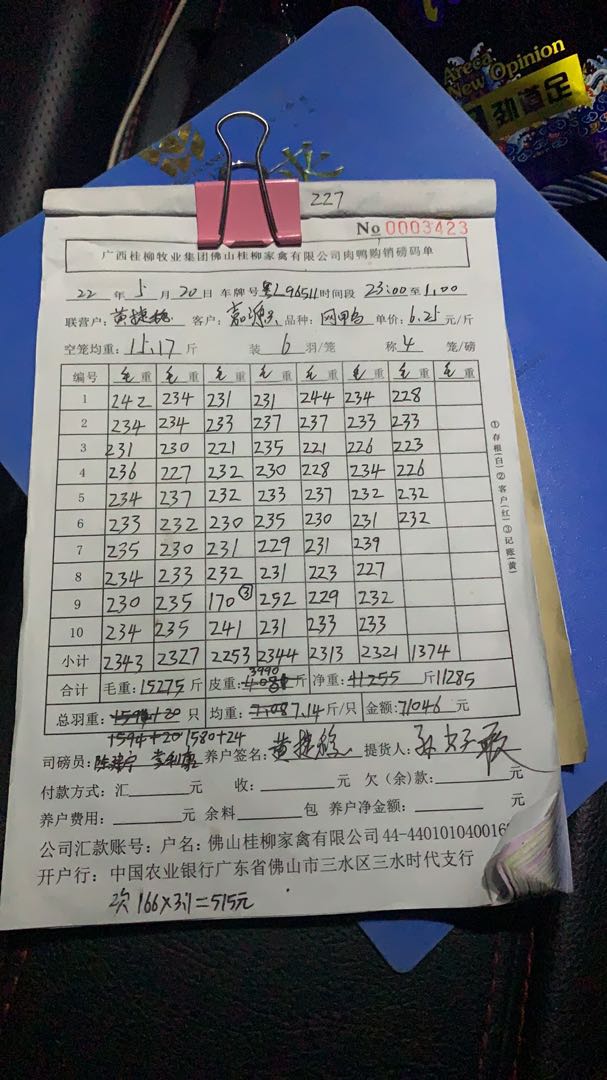 Areca
New Opinion
劲道足
227
No 0003423
广西桂柳牧业集团佛山桂柳家禽有限公司肉鸭购销磅码单
22 年 5 月 20 日 车牌号 粤L96511 时间段 23:00至1:00
联营户: 黄捷 客户: 嘉源 品种: 网甲 单价: 6.25 元/斤
空笼均重: 15.17 斤 装 6 羽/笼 称 4 笼/磅
编号 毛重 毛重 毛重 毛重 毛重 毛重 毛重 毛重
1 242 234 231 231 244 234 228
2 234 234 233 237 237 233 233
3 231 230 221 235 221 226 223
4 236 227 232 230 228 234 226
5 234 237 232 233 237 232 232
6 233 232 230 235 230 231 232
7 235 230 231 229 231 239
8 234 233 232 231 223 227
9 230 235 170③ 252 229 232
10 234 235 241 231 233 233
小计 2343 2327 2253 2344 2313 2321 1374
合计 毛重: 15275 斤 皮重: 3990 斤 净重: 11255 斤 11285
总羽重: 1594+20 只 均重: 7.14 斤/只 金额: 71046 元
1594+20 1580+24
司磅员: 养户签名: 黄捷 提货人: 孙
付款方式: 汇 元 收: 元 欠(余)款: 元
养户费用: 元 余料 包 养户净金额: 元
公司汇款账号: 户名: 佛山桂柳家禽有限公司 44-440101040016
开户行: 中国农业银行广东省佛山市三水区三水时代支行
次 166×3.1=515元
①存根(白)②客户(红)③记账(黄)